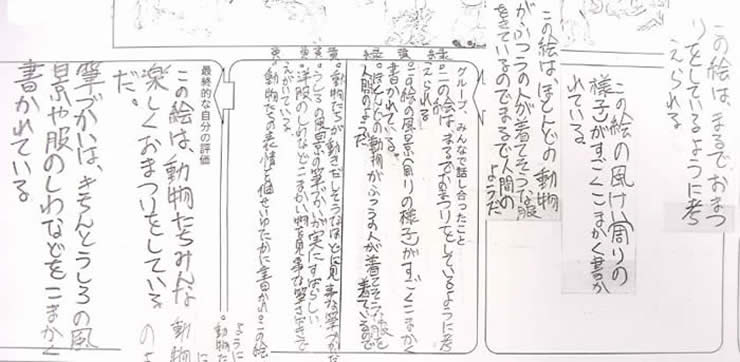 この絵は、まるでおまつ
りをしているように考
えられる
この絵の風けい(周りの
様子)がすごくこまかく書か
れている。
この絵は、ほとんどの動物
がふつうの人が着てそうな服
をきているのでまるで人間の
ようだ
グループ、みんなで話し合ったこと
・この絵は、まるでおまつりをしているように考
えられる
・この絵の風景(周りの様子)がすごくこまかく
書かれている。
・ほとんどの動物がふつうの人が着てそうな服を
着ているので
人間のようだ。
・動物たちが動きだしそうなほど見事な筆づかい
・うしろの風景の筆づかいが実にすばらしい。
・洋服のしわなどこまかい物を見事な筆さばきで
えがいている。
・動物たちの表情を個せいゆたかに書かれ
この絵
最終的な自分の評価
この絵は、動物たちみんな
楽しくおまつりをしている
だ。
筆づかいは、きちんとうしろの風
景や服のしわなどをこまかく
書かれている